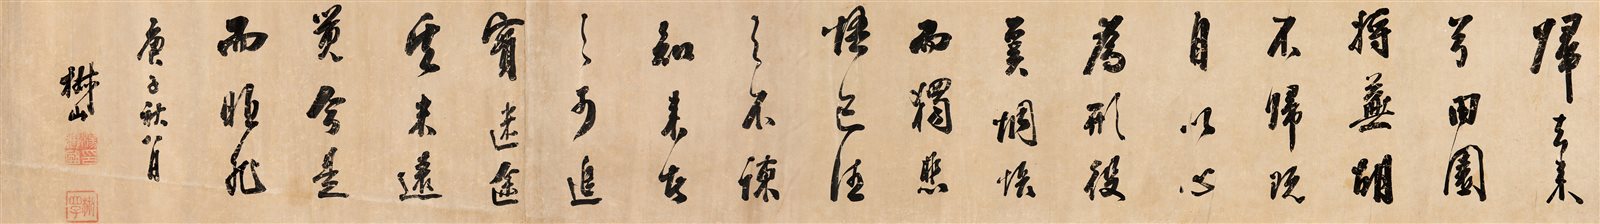 歸去来
兮田園
將蕪胡
不歸既
自以心
為形役
奚惆悵
而獨悲
悟已往
之不諫
知来者
之可追
實迷途
其未遠
覺今是
而昨非
庚子秋八月
山